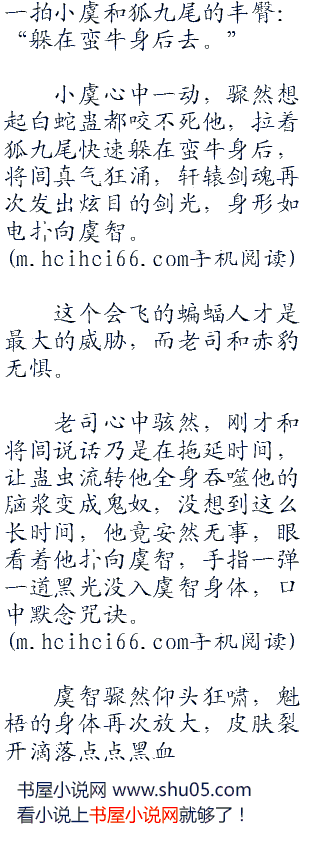 一拍小虞和狐九尾的丰臀：
“躲在蛮牛身后去。”
小虞心中一动，骤然想
起白蛇蛊都咬不死他，拉着
狐九尾快速躲在蛮牛身后，
将闾真气狂涌，轩辕剑魂再
次发出炫目的剑光，身形如
电扑向虞智。
(m.hcihci66.com手机阅读)
这个会飞的蝙蝠人才是
最大的威胁，而老司和赤豹
无惧。
老司心中骇然，刚才和
将闾说话乃是在拖延时间，
让蛊虫流转他全身吞噬他的
脑浆变成鬼奴，没想到这么
长时间，他竟安然无事，眼
看着他扑向虞智，手指一弹
一道黑光没入虞智身体，口
中默念咒诀。
(m.hcihci66.com手机阅读)
虞智骤然仰头狂啸，魁
梧的身体再次放大，皮肤裂
开滴落点点黑血
书屋小说网 www.shu05.com
看小说上书屋小说网就够了！